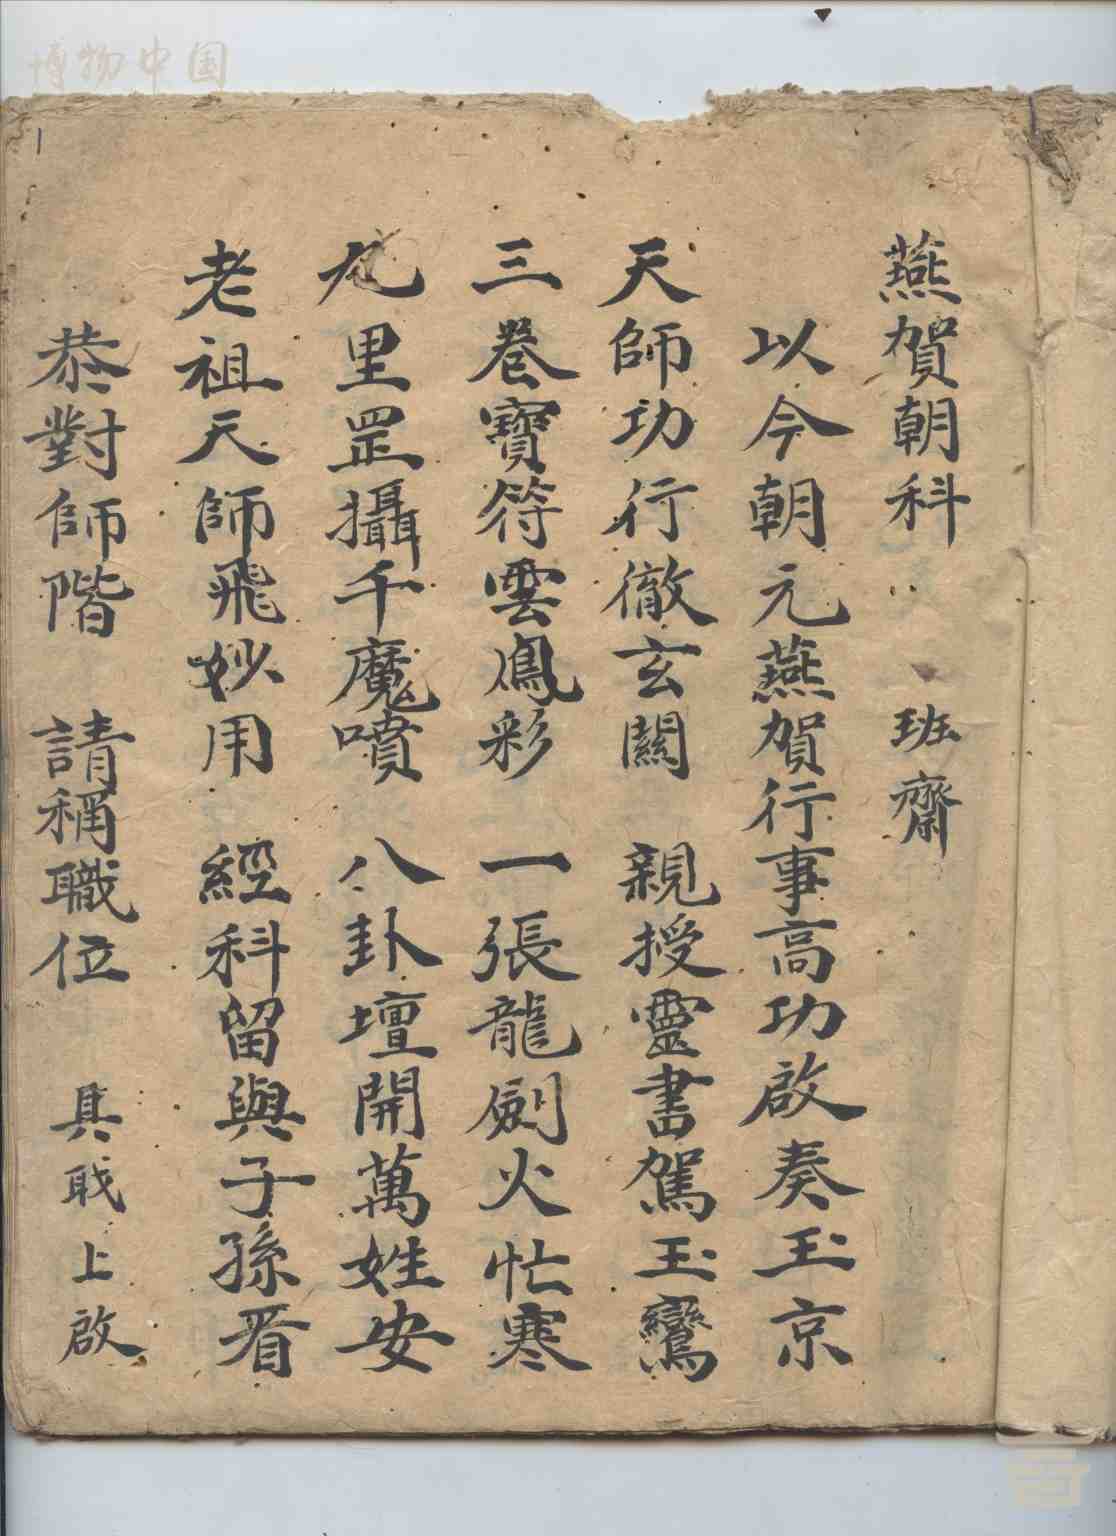 博物中国
1
燕賀朝科 班齋
以今朝元燕賀行事高功啟奏玉京
天師功行徹玄關 親授靈書駕玉鸞
三卷寶符雲鳳彩 一張龍劍火忙寒
九里罡攝千魔噴 八卦壇開萬姓安
老祖天師飛妙用 經科留與子孫看
恭對師階 請稱職位 具戝上啟